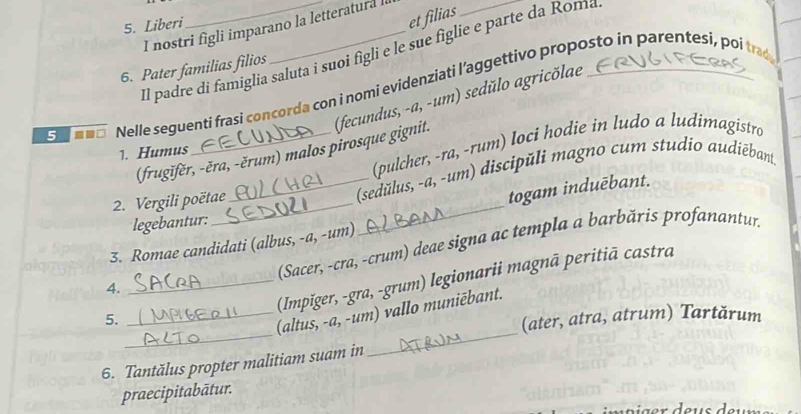 5. Liberi
I nostri figli imparano la letteratura
6. Pater familias filios et filias
Il padre di famiglia saluta i suoi figli e le sue figlie e parte da Roma.
5 Nelle seguenti frasi concorda con i nomi evidenziati l'aggettivo proposto in parentesi, poi
1. Humus FECUNDA (fecundus, -a, -um) sedŭlo agricŏlae FRUGIFERAS
(frugĭfĕr, -ĕra, -ĕrum) malos pirosque gignit.
2. Vergili poëtae PULCHRI (pulcher, -ra, -rum) loci hodie in ludo a ludimagistro
legebantur: SEDULI (sedŭlus, -a, -um) discipŭli magno cum studio audiēbant.
3. Romae candidati (albus, -a, -um) ALBAM togam induēbant.
4. SACRA (Sacer, -cra, -crum) deae signa ac templa a barbăris profanantur.
5. IMPIGERII (Impĭger, -gra, -grum) legionarii magnā peritiā castra
ALTO (altus, -a, -um) vallo muniēbant.
6. Tantălus propter malitiam suam in ATRUM (ater, atra, atrum) Tartărum
praecipitabātur.
deus